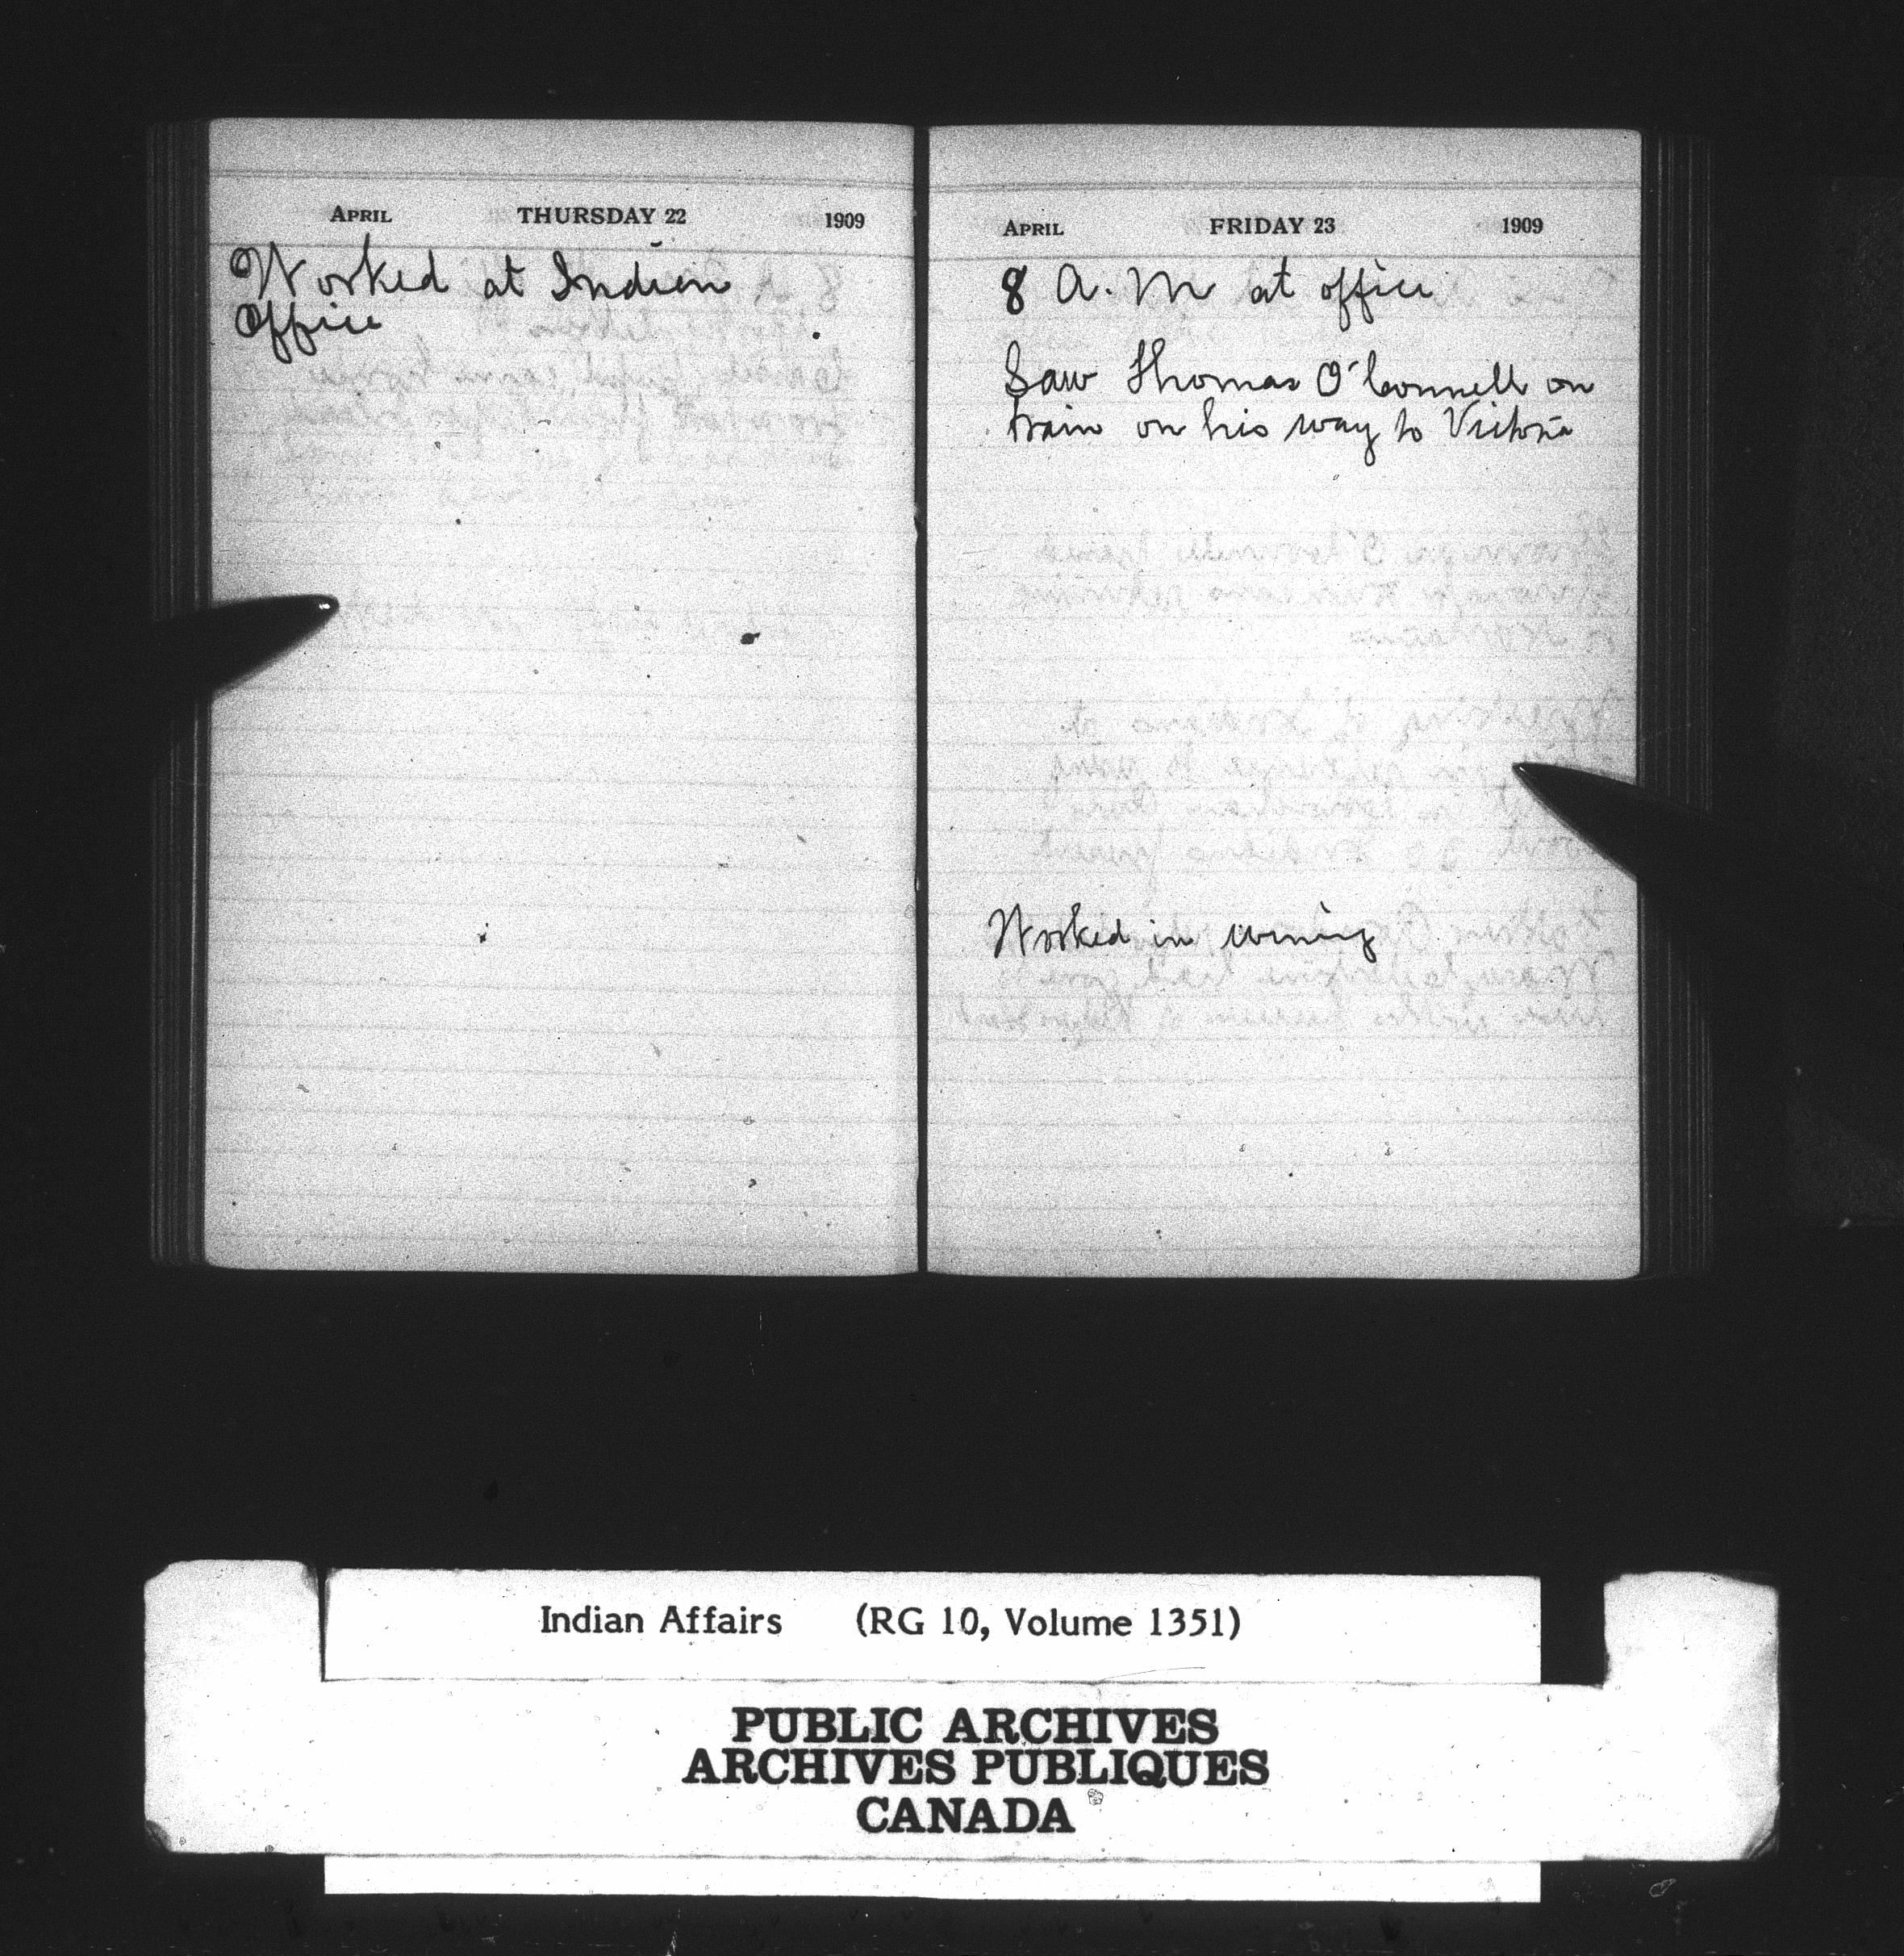 APRIL THURSDAY 22 1909
Worked at Indian
Office
APRIL FRIDAY 23 1909
8 A.M at office
Saw Thomas O'Connell on
train on his way to Victoria
Worked in evening
Indian Affairs (RG 10, Volume 1351)
PUBLIC ARCHIVES
ARCHIVES PUBLIQUES
CANADA